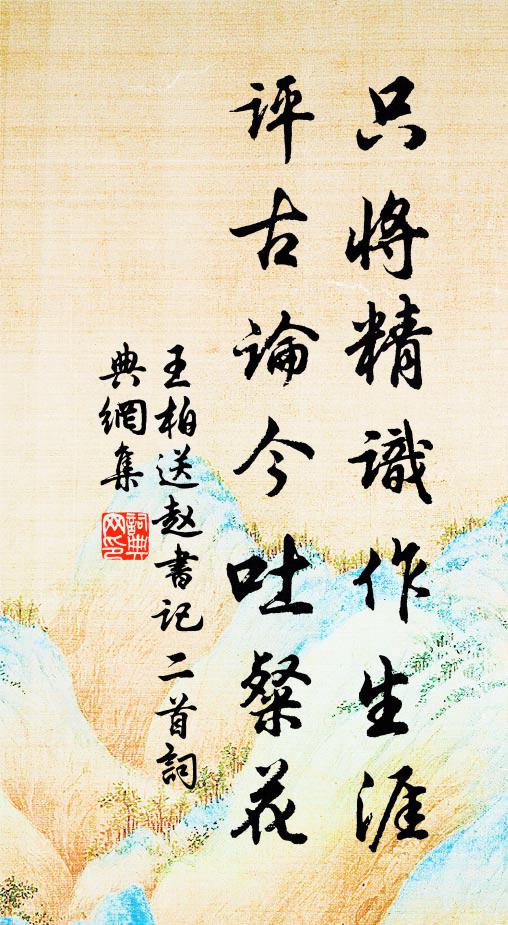 只将精識作生涯
评古論今吐粲花
王柏送赵書记二首詞
典網集
詞典网印